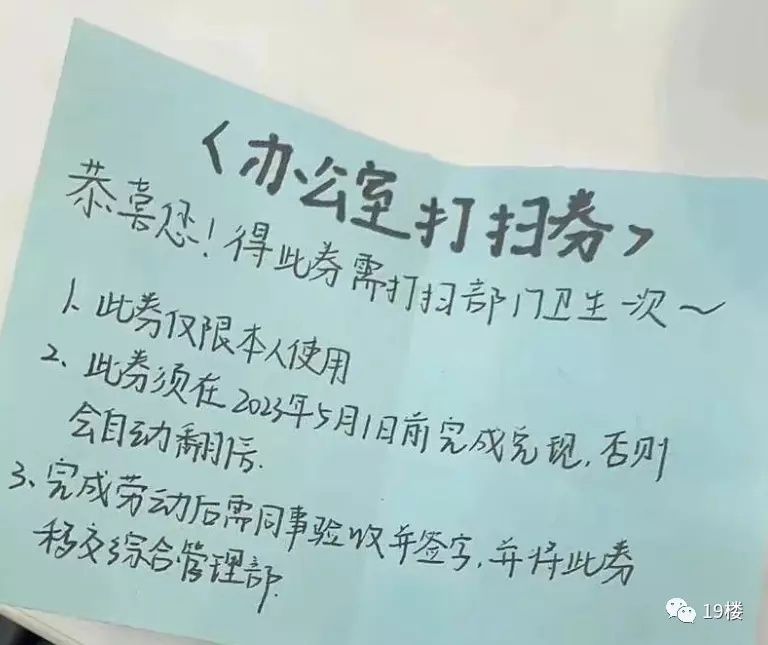 〈办公室打扫券〉
恭喜您！得此券需打扫部门卫生一次～
1、此券仅限本人使用
2、此券须在2023年5月1日前完成兑现，否则
会自动翻倍.
3、完成劳动后需同事验收并签字，并将此券
移交综合管理部.
19楼